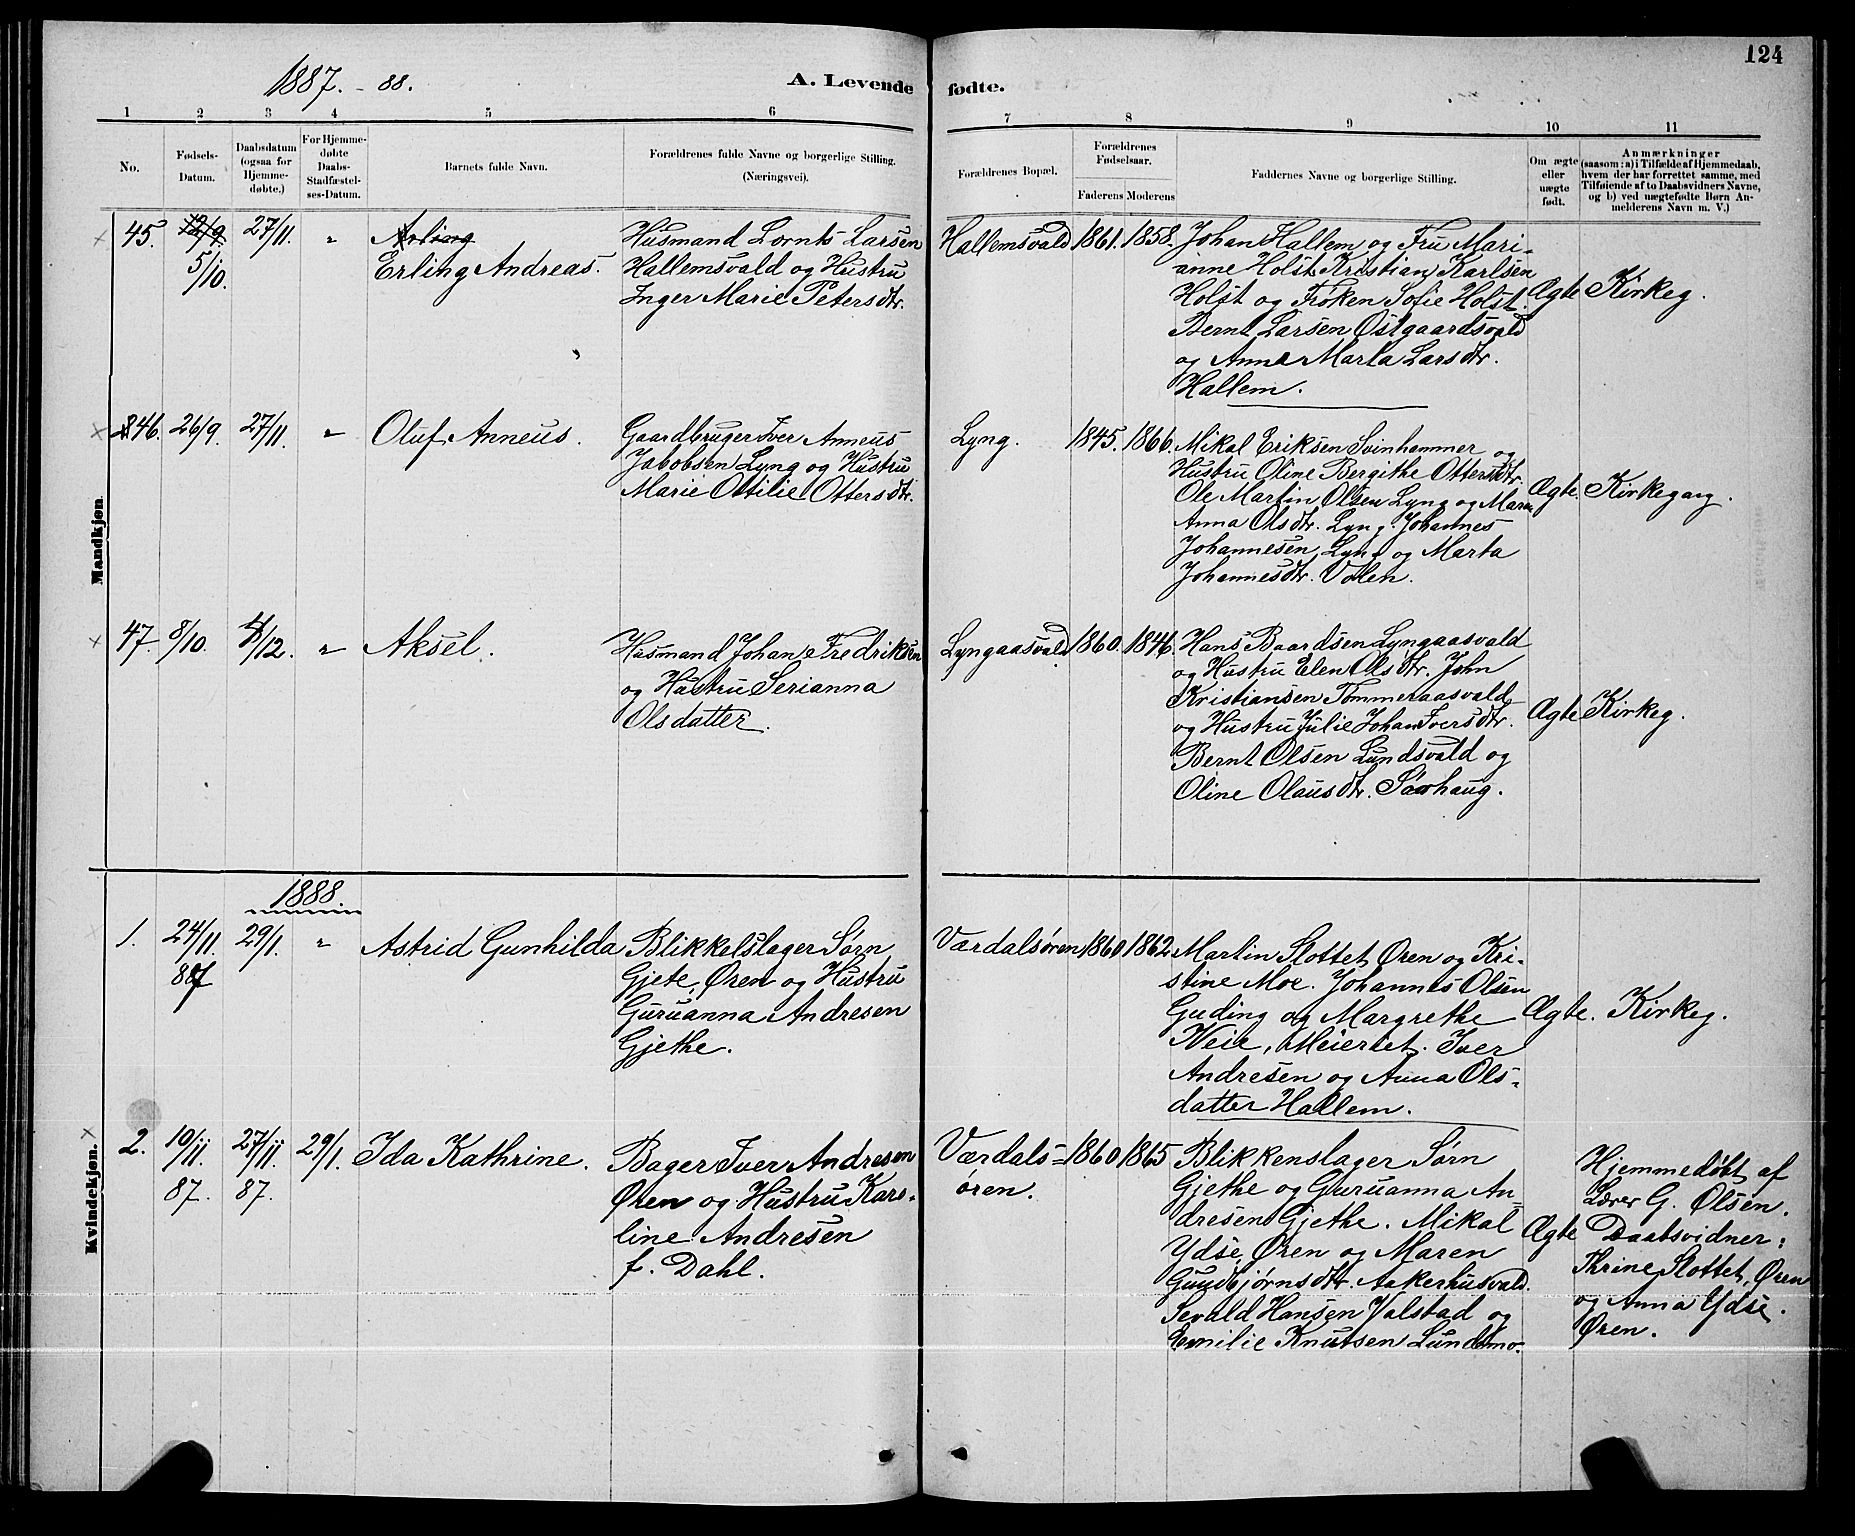 124
1887. - 88.
A. Levende fødte.
1 2 3 4 5 6 7 8 9 10 11
No.
Fødsels-
Datum.
Daabsdatum
(ogsaa for
Hjemme-
døbte.)
For Hjemme-
døbte
Daabs-
Stadfæstel-
ses-Datum.
Barnets fulde Navn.
Forældrenes fulde Navne og borgerlige Stilling.
(Næringsvei).
Forældrenes Bopæl.
Forældrenes
Fødselsaar.
Faderens Moderens
Faddernes Navne og borgerlige Stilling.
Om ægte
eller
uægte
født.
Anmærkninger
(saasom: a) i Tilfælde af Hjemmedaab,
hvem der har forrettet samme, med
Tilføiende af to Daabsvidners Navne,
og b) ved uægtefødte Børn An-
melderens Navn m. V.)
Mandkjøn.
45.
12/9
5/10.
27/11.
"
Erling Andreas.
Husmand Lornts Larsen
Hallemsvald og Hustru
Inger Marie Petersdtr.
Hallemsvald
1861.
1858.
Johan Hallem og Fru Mari-
anne Holst. Kristian Karlsen
Holst og Frøken Sofie Holst.
Bernt Larsen Østgaardsvald
og Anna Marta Larsdtr.
Hallem.
Ægte
Kirkeg.
46.
26/9.
27/11.
"
Oluf Anneus.
Gaardbruger Iver Anneus
Jakobsen Lyng og Hustru
Marie Ottilie Ottersdtr.
Lyng.
1845.
1866.
Mikal Eriksen Svinhammer og
Hustru Oline Bergithe Ottersdtr.
Ole Martin Olsen Lyng og Maren
Anna Olsdtr. Lyng. Johannes
Johannesen Lyng og Marta
Johannesdtr. Volen.
Ægte.
Kirkegang.
47.
8/10.
4/12.
"
Aksel.
Husmand Johan Fredriksen
og Hustru Serianna
Olsdatter.
Lyngaasvald
1860.
1846.
Hans Baardsen Lyngaasvald
og Hustru Elen Olsdtr. John
Kristiansen Tømmeraasvald
og Hustru Julie Johan Iversdtr.
Bernt Olsen Lundsvald og
Oline Olausdtr. Sørhaug.
Ægte
Kirkeg.
1888.
Kvindekjøn.
1.
24/11
87
29/1.
"
Astrid Gunhilda
Blikkelslager Sørn
Gjete, Øren og Hustru
Guruanna Andresen
Gjethe.
Værdalsøren
1860
1862
Martin Slottet, Øren og Kri-
stine Moe. Johannes Olsen
Guding og Margrethe
Weie, Meieriet. Iver
Andresen og Anna Ols-
datter Hallem.
Ægte.
Kirkeg.
2.
19/11.
87.
27/11
87.
29/1.
Ida Kathrine.
Bager Iver Andresen
Øren og Hustru Karo-
line Andresen
f. Dahl.
Værdals-
øren.
1860
1865
Blikkenslager Sørn
Gjethe og Guruanna An-
dresen Gjethe. Mikal
Ydse, Øren og Maren
Gundbjørnsdtr. Aakerhusvald.
Sevald Hansen Valstad og
Emilie Knutsen Lundsmo.
Ægte
Hjemmedøbt af
Lærer G. Olsen.
Daabsvidner:
Thrine Slottet, Øren
og Anna Ydse.
Øren.